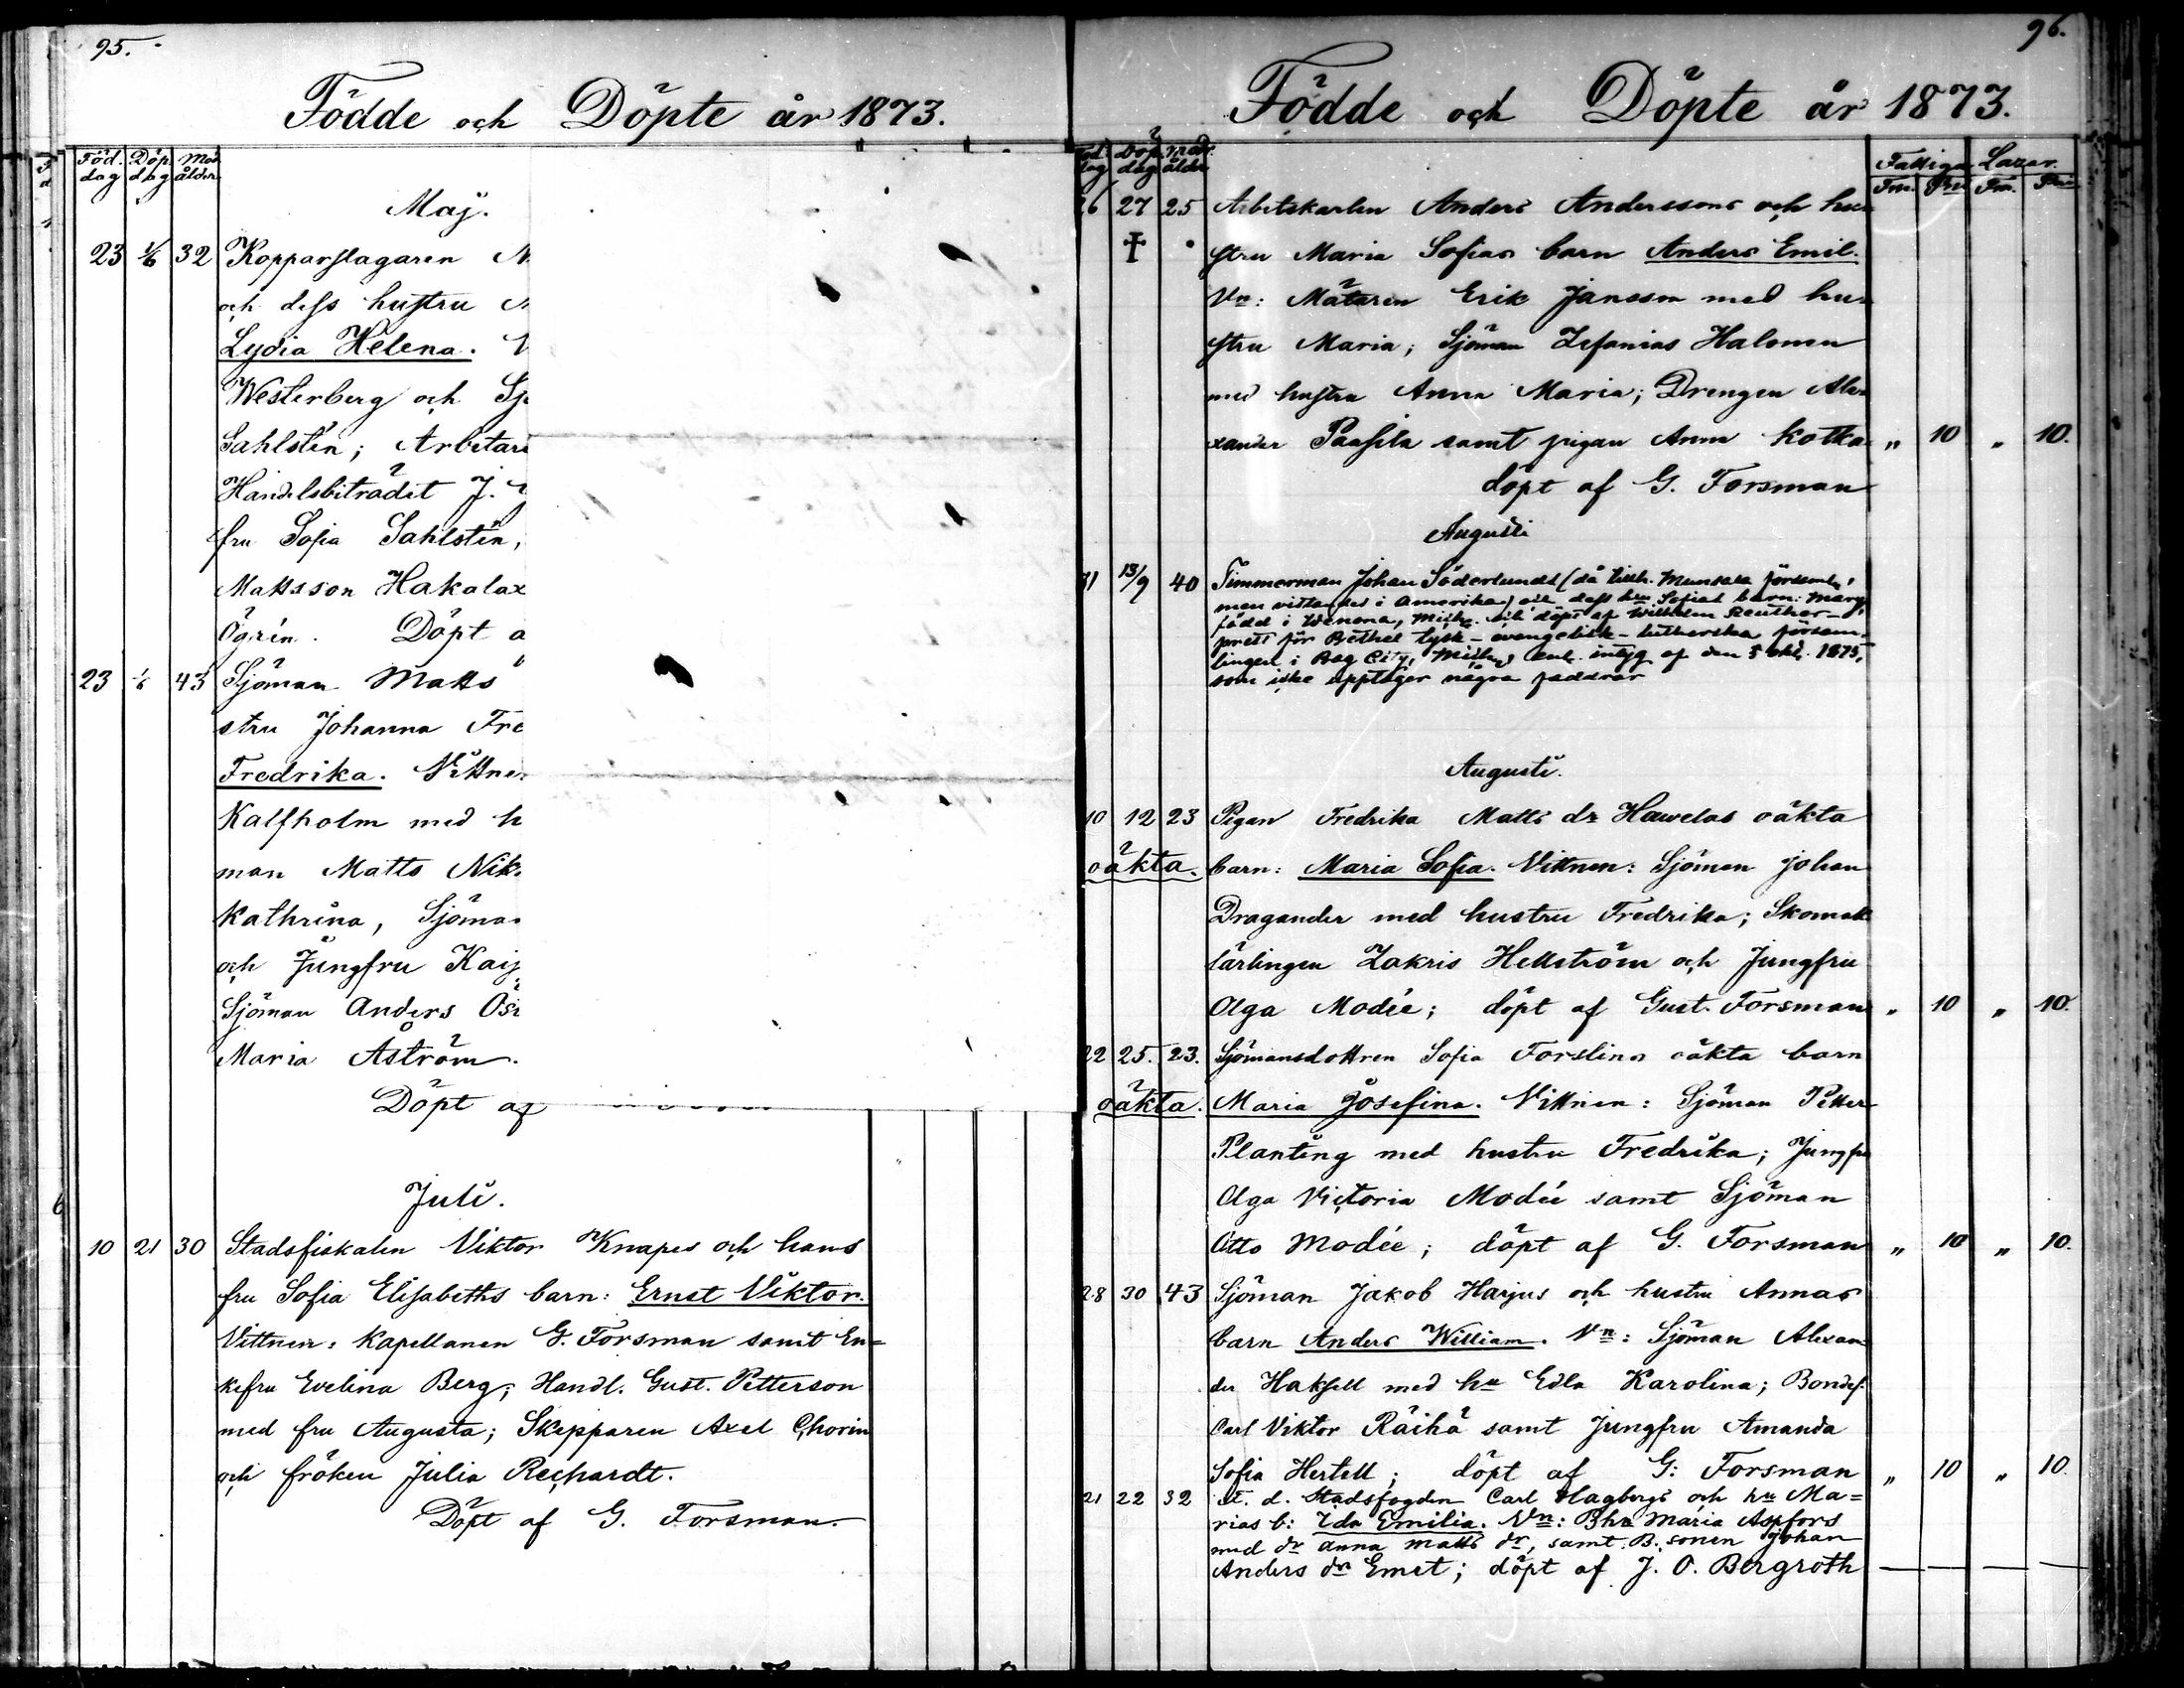 95.
Födde och Döpte år 1873.
Föd. dag Döp. dag Mod. ålder
Maj.
23 1/6 32 Kopparslagaren
och dess hustru
Lydia Helena.
Westerberg och
Sahlstén;
Handelsbiträdet J.
fru Sofia Sahlstén,
Mattsson
Ögrén. Döpt
23 1/6 43 Sjöman Matts
stru Johanna
Fredrika.
Kalfholm med
man Matts
Kathrina,
och Jungfru
Sjöman Anders
Maria Åström.
Döpt af
Juli.
10 21 30 Stadsfiskalen Viktor Knapes och hans
fru Sofia Elisabeths barn: Ernst Viktor.
Vittnen: Kapellanen G. Forsman samt En=
kefru Evelina Berg; Handl. Gust. Petterson
med fru Augusta; Skepparen Axel Chorin
och fröken Julia Rechardt.
Döpt af G. Forsman.
96.
Födde och Döpte år 1873.
Döp. dag ålder
Fattiga Lazar.
27 25 Arbetskarlen Anders Anderssons och hu
stru Maria Sofias barn Anders Emil.
Vn: Mätaren Erik Jansson med hu
stru Maria; Sjöman Zefanias Halonen
med hustru Anna Maria; Drengen Ale
xander samt pigan Anna Kotka „ 10 „ 10.
döpt af G. Forsman
Augusti
13/9 40 Timmerman Johan Söderlunds (då tillh. Munsala församl.
men vistandes i Amerika) och dess hru Sofias barn: Mary
född i Wenona, Mich. och döpt af Wilhelm Reuther
prest för Bethel tysk-evangelisk-lutherska försam
lingen i Bay City, enl. intyg af den 5 1875,
som icke upptager några faddrar
Augusti.
10 12 23 Pigan Fredrika Matts dr Hawelas oäkta
oäkta. barn: Maria Sofia. Vittnen: Sjöman Johan
Dragander med hustru Fredrika; Skomak
lärlingen Zakris Hellström och Jungfru
Olga Modée; döpt af Gust. Forsman „ 10 „ 10.
22 25. 23. Sjömansdottren Sofia Forslins oäkta barn
oäkta. Maria Josefina. Vittnen: Sjöman Petter
Planting med hustru Fredrika; Jungfru
Olga Victoria Modée samt Sjöman
Otto Modée; döpt af G. Forsman „ 10 „ 10.
28 30 43 Sjöman Jakob Harjus och hustru Annas
barn Anders William. Vn: Sjöman Alexan
der med hu Edla Karolina; Bondes.
Carl Viktor Räihä samt Jungfru Amanda
Sofia Hertell; döpt af G: Forsman „ 10 „ 10.
21 22 32 t. d. Stadsfogden Carl Hagbergs och hu Ma=
rias b: Ida Emilia. Vn: Bhu Maria Aspfors
med dr Anna Matts dr, samt B. sonen Johan
Anders dr Emet; döpt af J. O. Bergroth